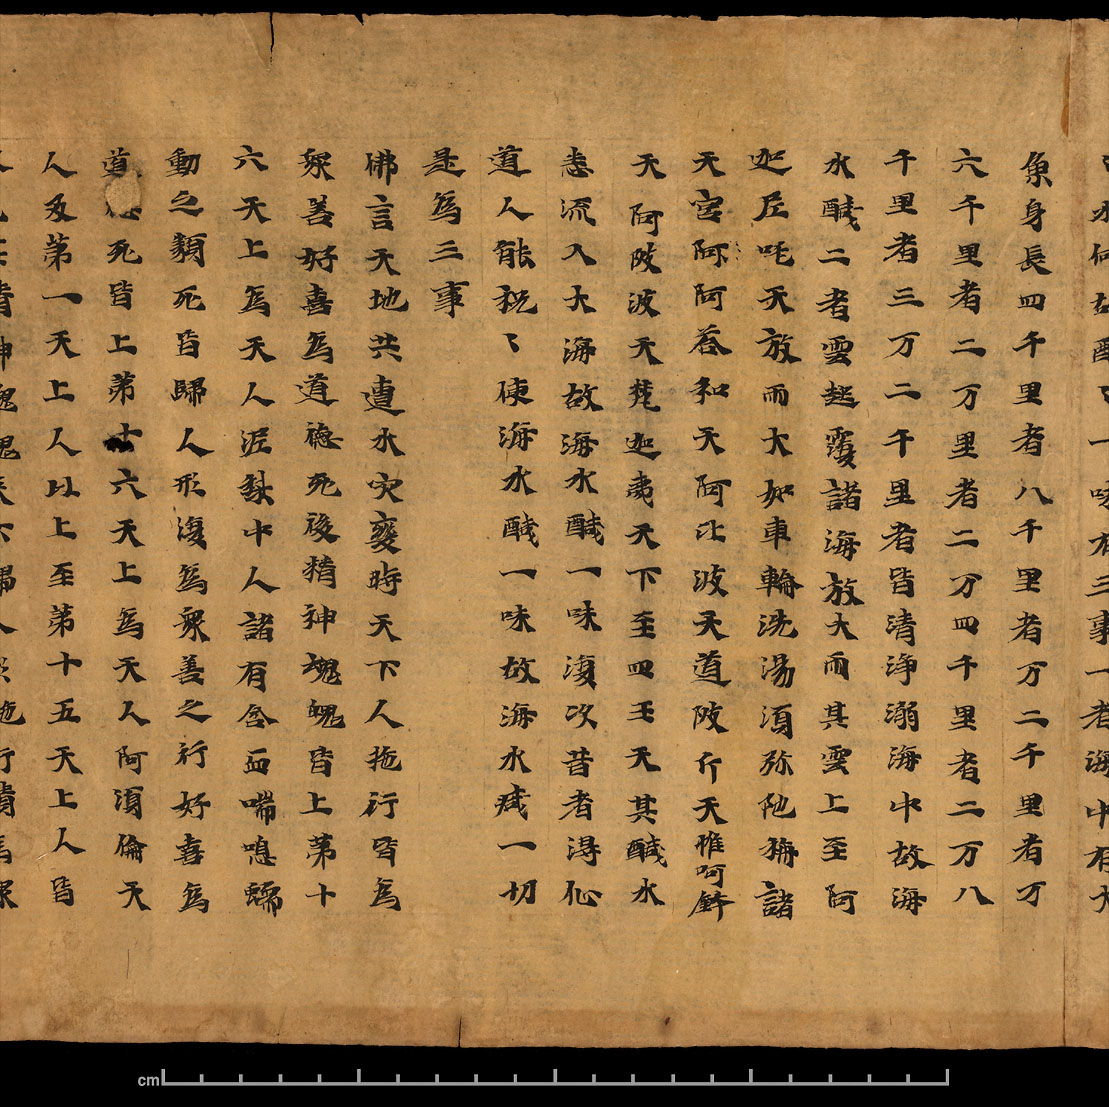 水何故醎〻一味有三事一者海中有大
魚身長四千里者八千里者万二千里者万
六千里者二万里者二万四千里者二万八
千里者三万二千里者皆清浄溺海中故海
水醎二者雲起覆諸海放大雨其雲上至阿
迦尼吒天放雨大如車輪洗湯湏弥陁稱諸
天宮阿阿荅和天阿比波天道陂斤天惟呵鉾
天阿陂波天梵迦夷天下至四王天其醎水
悉流入大海故海水醎一味復次昔者得仙
道人能祝〻使海水醎一味故海水醎一切
是為三事
佛言天地共遭水灾變時天下人施行皆為
衆善好喜為道徳死後精神魂魄皆上第十
六天上為天人泥犁中人諸有含血喘息蠕
動之類死皆歸人形復為衆善之行好喜為
道徳死皆上第十六天上為天人阿湏倫天
人及第一天上人以上至第十五天上人皆
神魂魄
cm